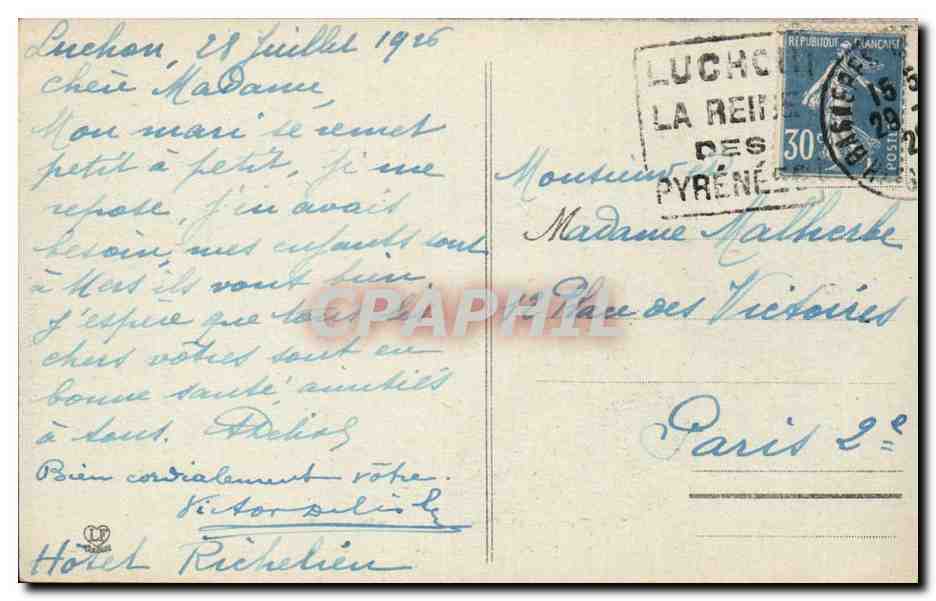 Luchon, 28 Juillet 1926
Chère Madame,
Mon mari se remet
petit à petit, je me
repose, j'en avais
besoin, mes enfants sont
à Mers ils vont bien
J'espère que tous les
chers vôtres sont en
bonne santé, amitiés
à tous.
Bien cordialement vôtre.
Victor
Hôtel Richelieu
LF
LUCHON
LA REINE
DES
PYRÉNÉES
RÉPUBLIQUE FRANÇAISE
30c
POSTES
BAGNERES
15
29
Monsieur
Madame Malherbe
12 Place des Victoires
Paris 2e
CPAPHIL